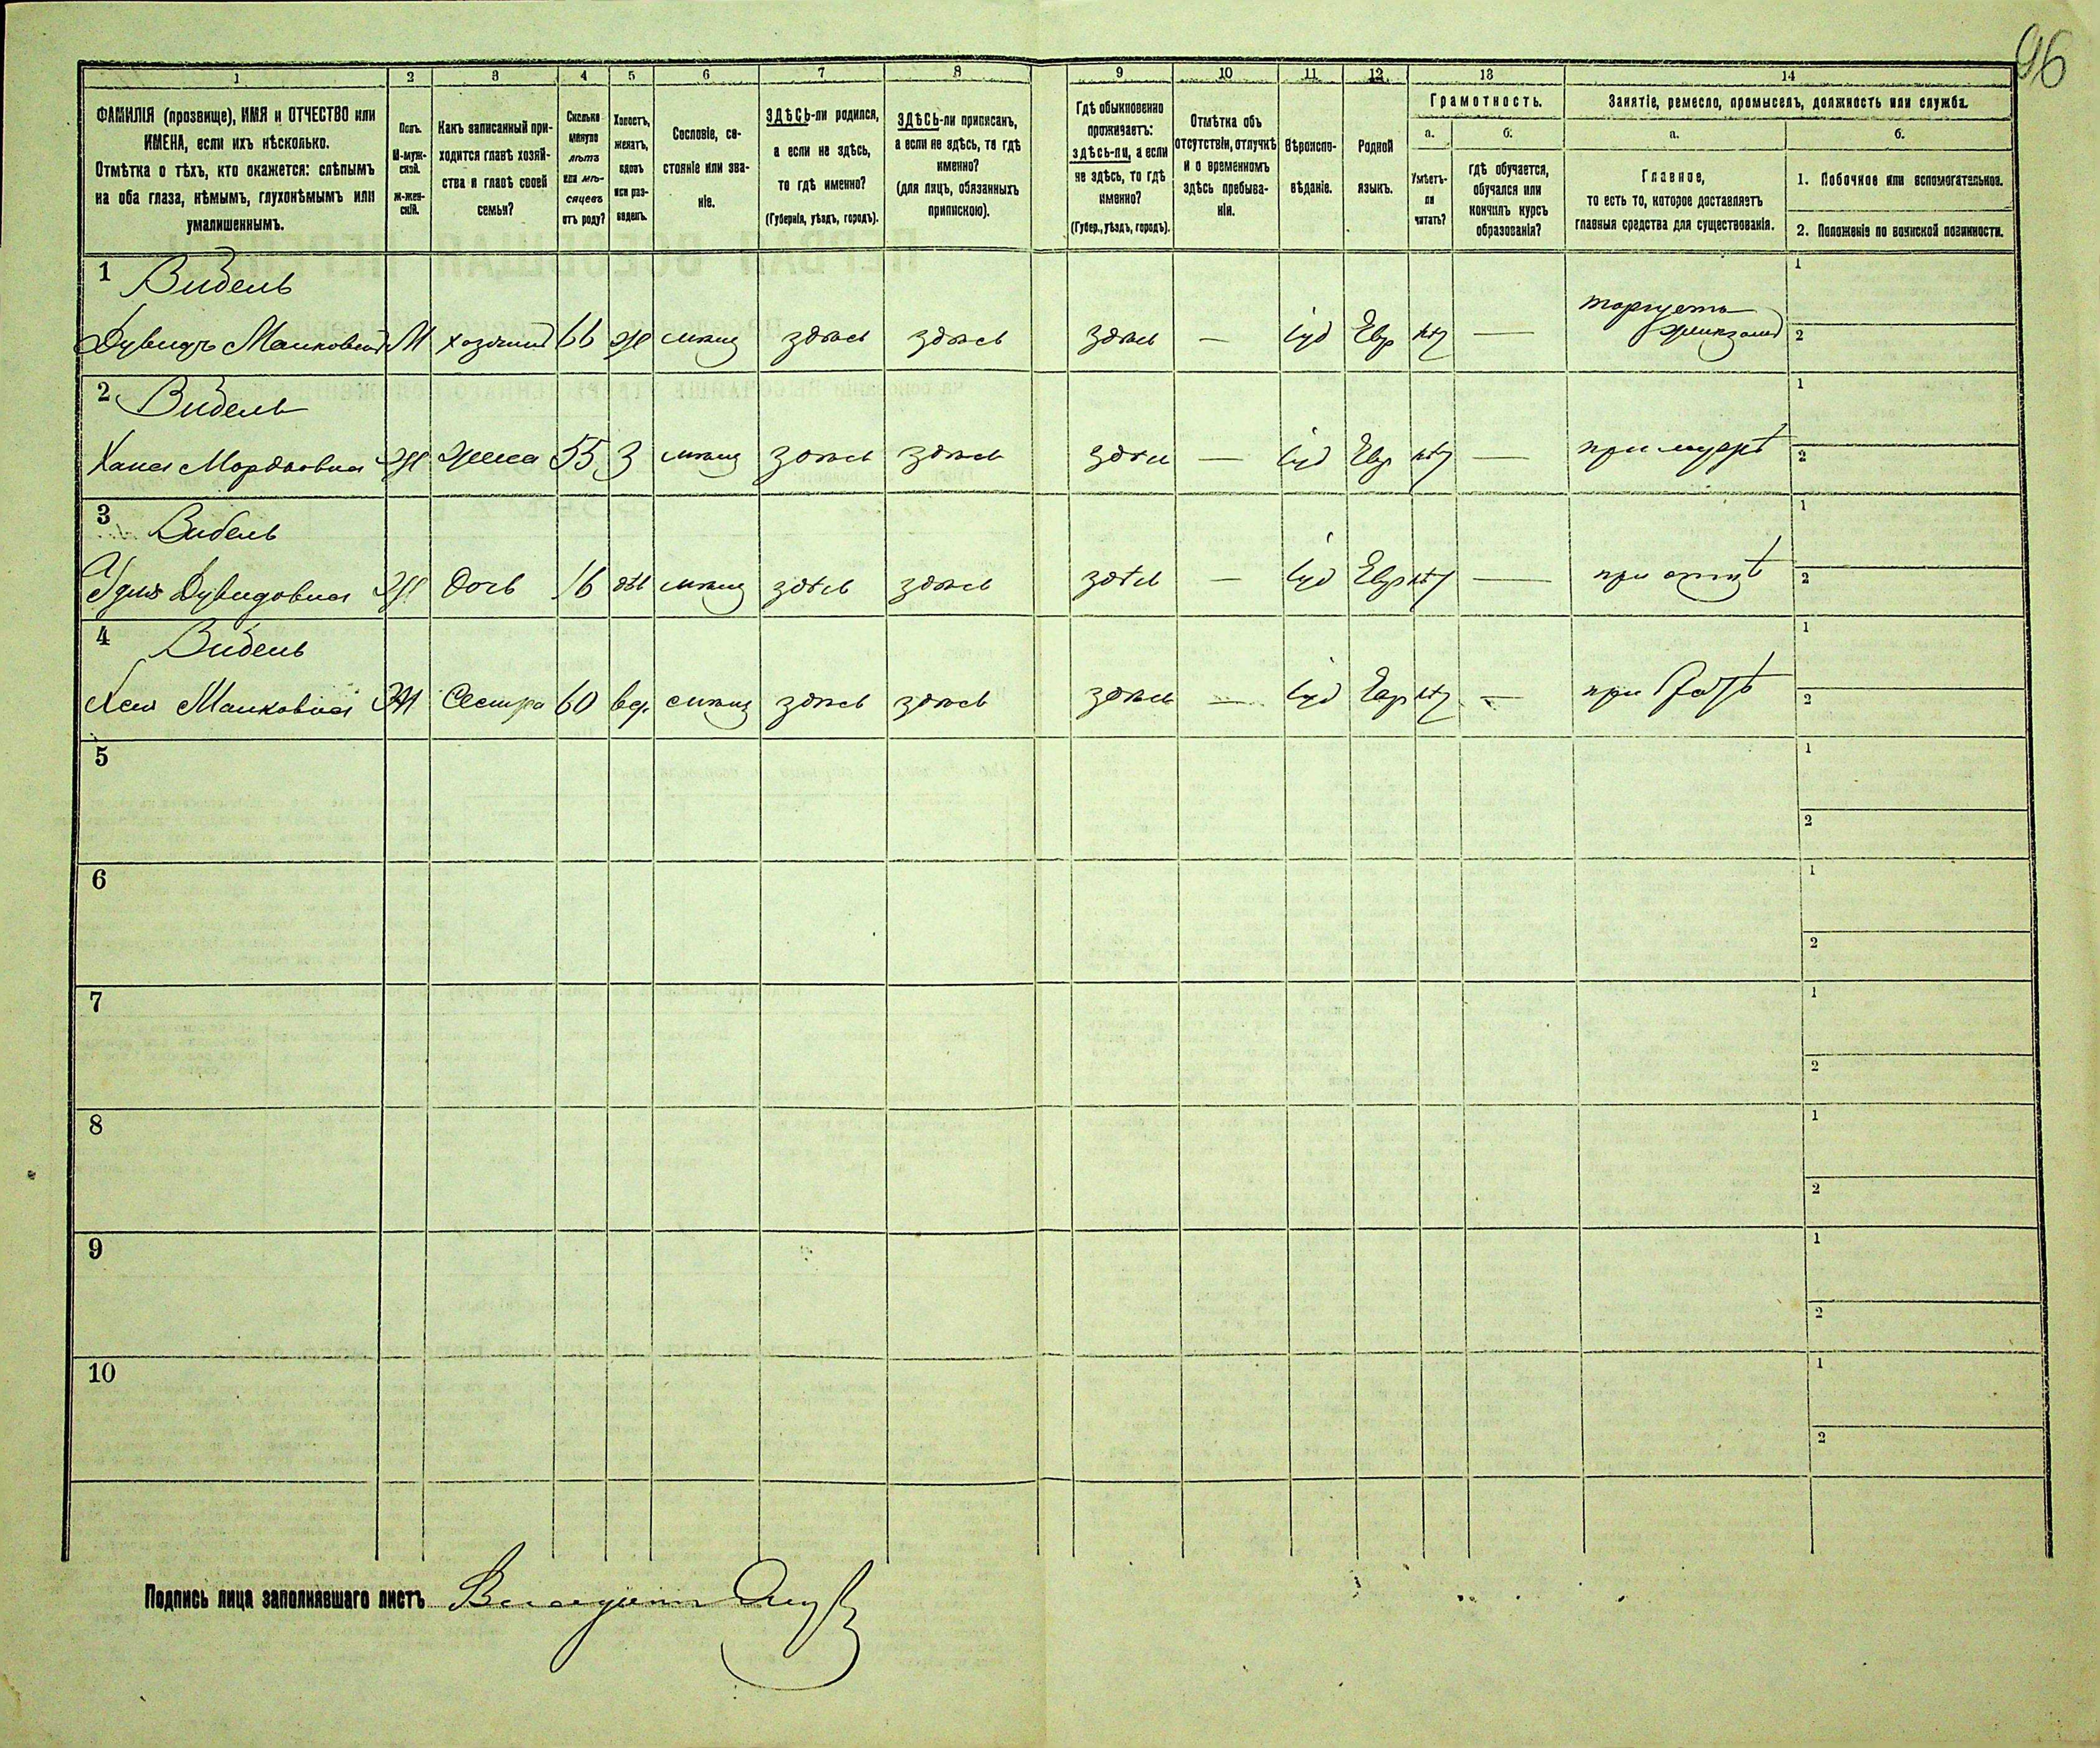 96
1 2 3 4 5 6 7 8 9 10 11 12 13 14
ФАМИЛІЯ (прозвище), ИМЯ и ОТЧЕСТВО или
ИМЕНА, если ихъ нѣсколько.
Отмѣтка о тѣхъ, кто окажется: слѣпымъ
на оба глаза, нѣмымъ, глухонѣмымъ или
умалишеннымъ.
Полъ.
М-муж-
ской.
Ж-жен-
скій.
Какъ записанный при-
ходится главѣ хозяй-
ства и главѣ своей
семьи?
Сколько
минуло
лѣтъ
или мѣ-
сяцевъ
отъ роду?
Холостъ,
женатъ,
вдовъ
или раз-
веденъ.
Сословіе, со-
стояніе или зва-
ніе.
ЗДѢСЬ-ли родился,
а если не здѣсь,
то гдѣ именно?
(Губернія, уѣздъ, городъ).
ЗДѢСЬ-ли приписанъ,
а если не здѣсь, то гдѣ
именно?
(для лицъ, обязанныхъ
припискою).
Гдѣ обыкновенно
проживаетъ:
здѣсь-ли, а если
не здѣсь, то гдѣ
именно?
(Губер., уѣздъ, городъ).
Отмѣтка объ
отсутствіи, отлучкѣ
и о временномъ
здѣсь пребыва-
ніи.
Вѣроиспо-
вѣданіе.
Родной
языкъ.
Грамотность.
а. б.
Умѣетъ-
ли
читать?
гдѣ обучается,
обучался или
кончилъ курсъ
образованія?
Занятіе, ремесло, промыселъ, должность или служба.
а. б.
Главное,
то есть то, которое доставляетъ
главныя средства для существованія.
1. Побочное или вспомогательное.
2. Положеніе по воинской повинности.
1 Видель 1
торгуетъ
Дувидъ Манковичъ М хозяинъ 66 ж мѣщ здѣсь здѣсь здѣсь — іуд Евр нѣт — 2
2 Видель 1
Хана Мордковна Ж жена 55 З мѣщ здѣсь здѣсь здѣсь — іуд Евр нѣт — при мужѣ 2
3 Видель 1
Дувидовна Ж дочь 16 дѣв мѣщ здѣсь здѣсь здѣсь — іуд Евр нѣт — при отцѣ 2
4 Видель 1
Манковна Ж Сестра 60 вд. мѣщ здѣсь здѣсь здѣсь — іуд Евр нѣт — при братѣ 2
5 1
2
6 1
2
7 1
2
8 1
2
9 1
2
10 1
2
Подпись лица заполнявшаго листъ